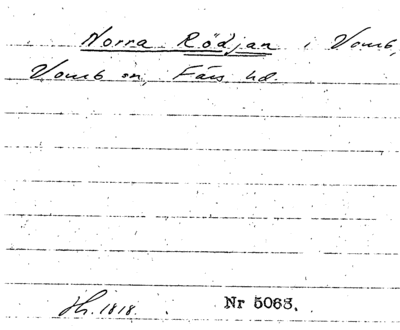 Norra Rödjan i Vomb,
Vomb sn, Färs hd.
Hs. 1818. Nr 5068.